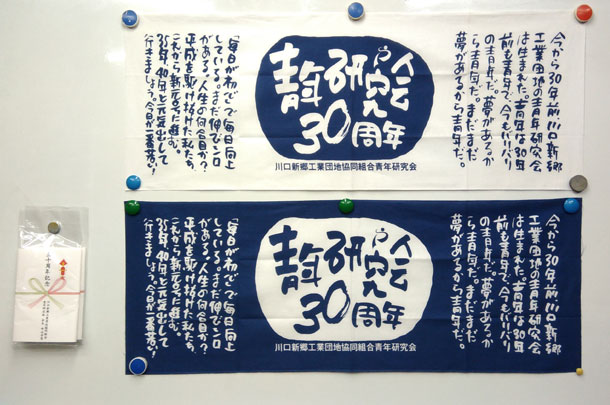 今から30年前川口新郷
工業団地の青年研究会
は生まれた。青年は30年
前も青年で、今もバリバリ
の青年だ。夢があるか
ら青年だ。まだまだ
夢があるから青年だ。
青年研究会
30周年
川口新郷工業団地協同組合青年研究会
「毎日が初心」で毎日向上
している。まだ伸びシロ
がある。人生の何合目か?
平成を駆け抜けた私たち
これから新元号に進む。
35年、40年と元気出して
行きましょう。今日が一番若い!
今から30年前川口新郷
工業団地の青年研究会
は生まれた。青年は30年
前も青年で、今もバリバリ
の青年だ。夢があるか
ら青年だ。まだまだ
夢があるから青年だ。
青年研究会
30周年
川口新郷工業団地協同組合青年研究会
「毎日が初心」で毎日向上
している。まだ伸びシロ
がある。人生の何合目か?
平成を駆け抜けた私たち
これから新元号に進む。
35年、40年と元気出して
行きましょう。今日が一番若い!
三十周年記念